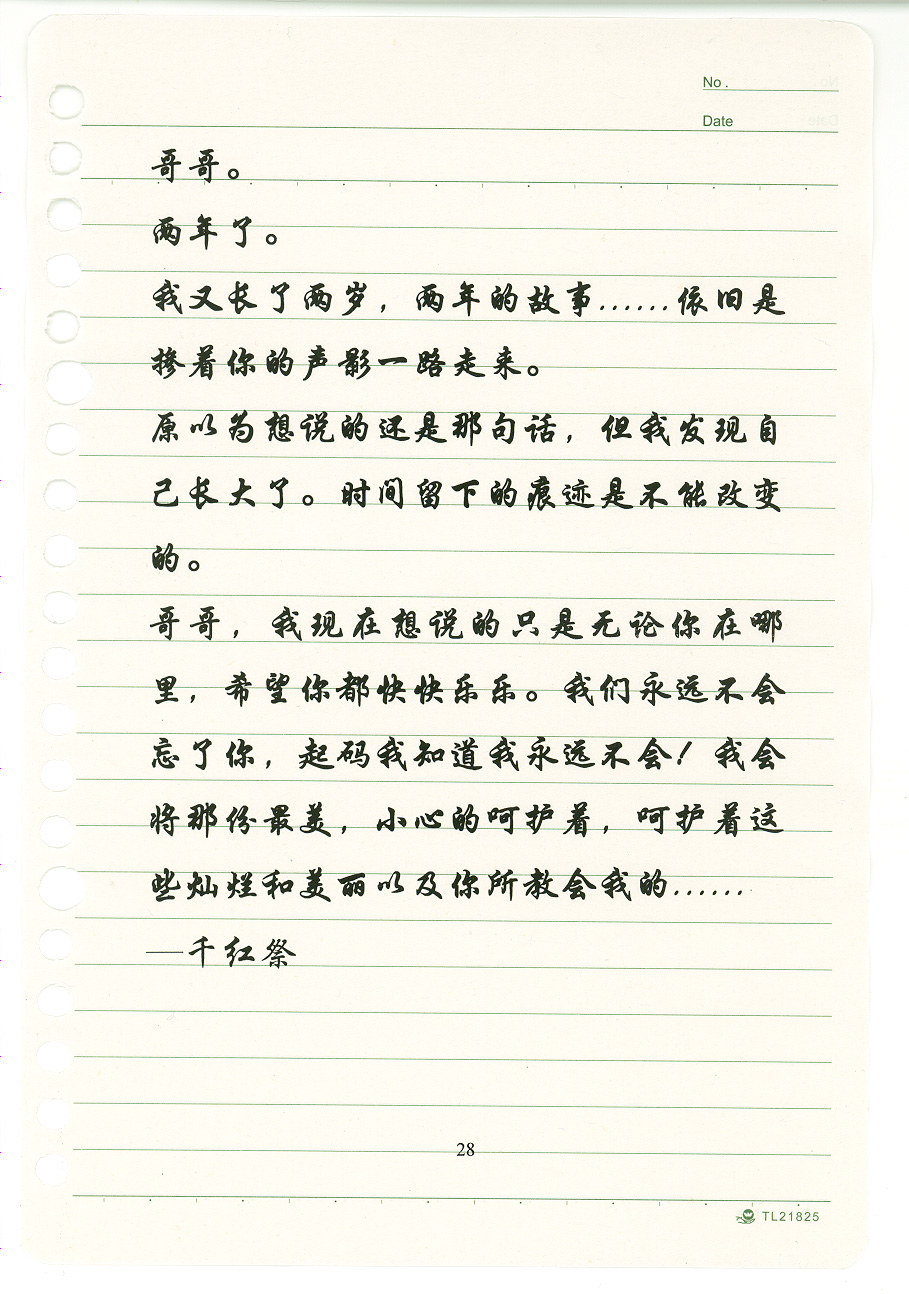 No.
Date
哥哥。
两年了。
我又长了两岁，两年的故事……依旧是
掺着你的声影一路走来。
原以为想说的还是那句话，但我发现自
己长大了。时间留下的痕迹是不能改变
的。
哥哥，我现在想说的只是无论你在哪
里，希望你都快快乐乐。我们永远不会
忘了你，起码我知道我永远不会！我会
将那份最美，小心的呵护着，呵护着这
些灿烂和美丽以及你所教会我的……
—千红祭
28
TL21825